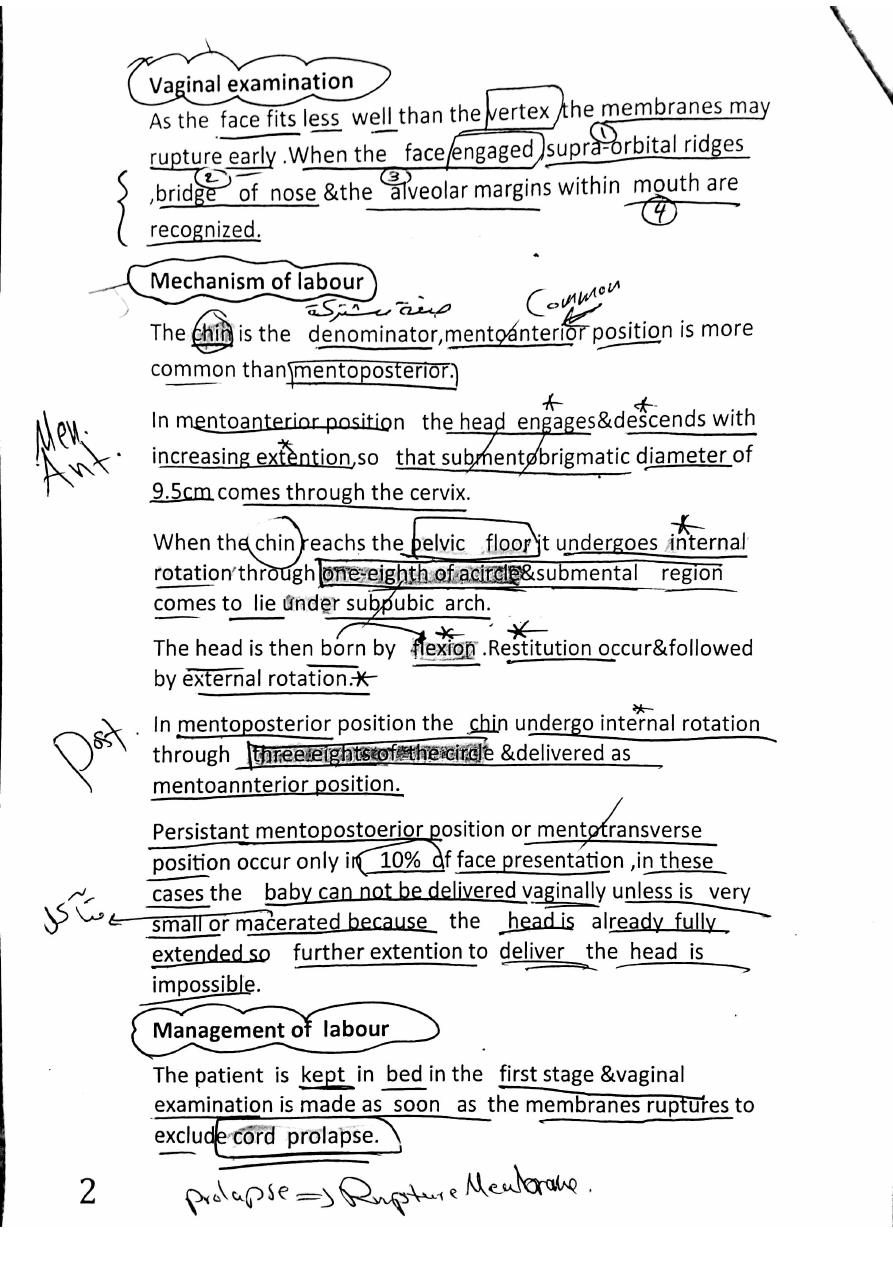 Vaginal examination
As the face fits less well than the vertex the membranes may
rupture early .When the face engaged supra-orbital ridges
1
,bridge of nose &the alveolar margins within mouth are
2 3
4
recognized.
Mechanism of labour
صفة مشتركة Common
The chin is the denominator,mentoanterior position is more
common than mentoposterior.
Men.
Ant.
In mentoanterior position the head engages&descends with
increasing extention,so that submentobrigmatic diameter of
9.5cm comes through the cervix.
When the chin reachs the pelvic floor it undergoes internal
rotation through one-eighth of acircle&submental region
comes to lie under subpubic arch.
The head is then born by flexion .Restitution occur&followed
by external rotation.
Post.
In mentoposterior position the chin undergo internal rotation
through three eights of the circle &delivered as
mentoannterior position.
Persistant mentopostoerior position or mentotransverse
position occur only in 10% of face presentation ,in these
cases the baby can not be delivered vaginally unless is very
متآكل
small or macerated because the head is already fully
extended so further extention to deliver the head is
impossible.
Management of labour
The patient is kept in bed in the first stage &vaginal
examination is made as soon as the membranes ruptures to
exclude cord prolapse.
2
prolapse ⇒ Rupture Membrane.